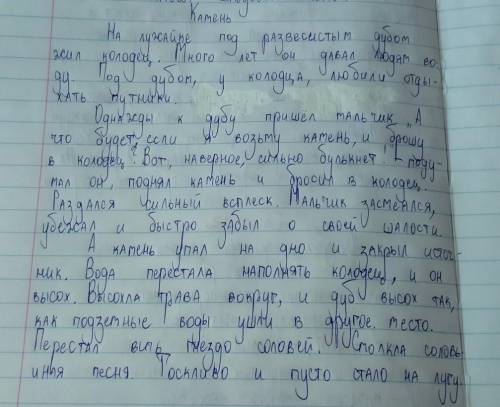 Камень
На лужайке под развесистым дубом
жил колодец. Много лет он давал людям во-
ду. Под дубом, у колодца, любили отды-
хать путники.
Однажды к дубу пришел мальчик „А
что будет, если я возьму камень, и брошу
в колодец? Вот, наверное, сильно булькнет! Поду-
мал он, поднял камень и бросил в колодец.
Раздался сильный всплеск. Мальчик засмеялся,
убежал и быстро забыл о своей шалости.
А камень упал на дно и закрыл источ-
ник. Вода перестала наполнять колодец, и он
высох. Высохла трава вокруг, и дуб высох так,
как подземные воды ушли в другое место.
Перестал вить гнездо соловей. Смолкла соловь-
иная песня. Тоскливо и пусто стало на лугу.